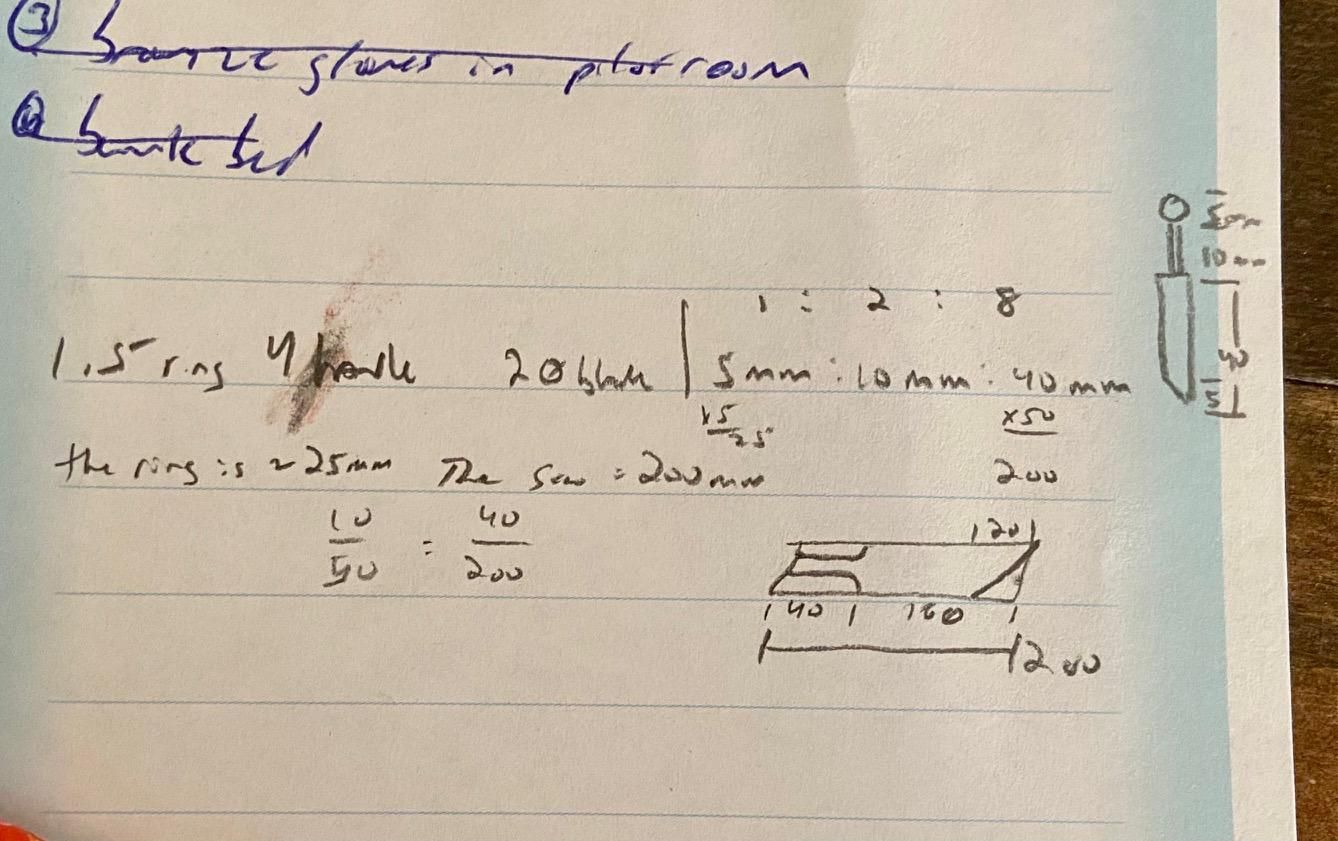 ③ bronze gloves in pilot room
④ bunk bed
5mm
10mm
40
5
1 : 2 : 8
1.5 ring 4 handle 20 blade | 5mm : 10mm : 40mm
x5 x50
25 200
the ring is ~ 25mm The = 200mm
10/50 = 40/200
20
40 160
200